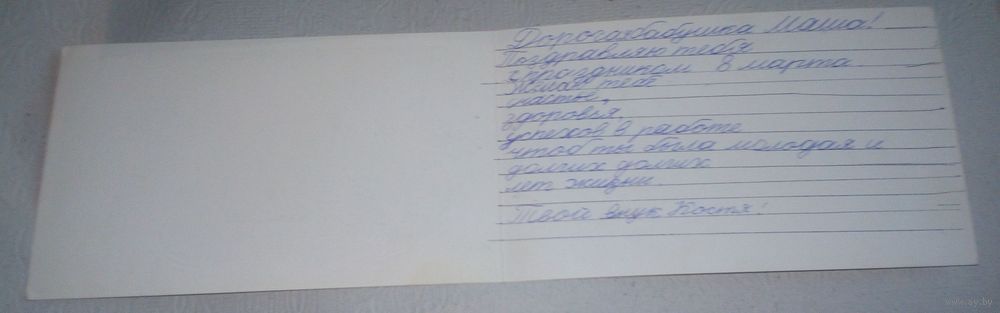 Дорогая бабушка Маша!
Поздравляю тебя
с праздником 8 марта
Желаю тебе
счастье,
здоровья,
успехов в работе
чтоб ты была молодая и
долгих долгих
лет жизни.
Твой внук Костя!
www.ay.by